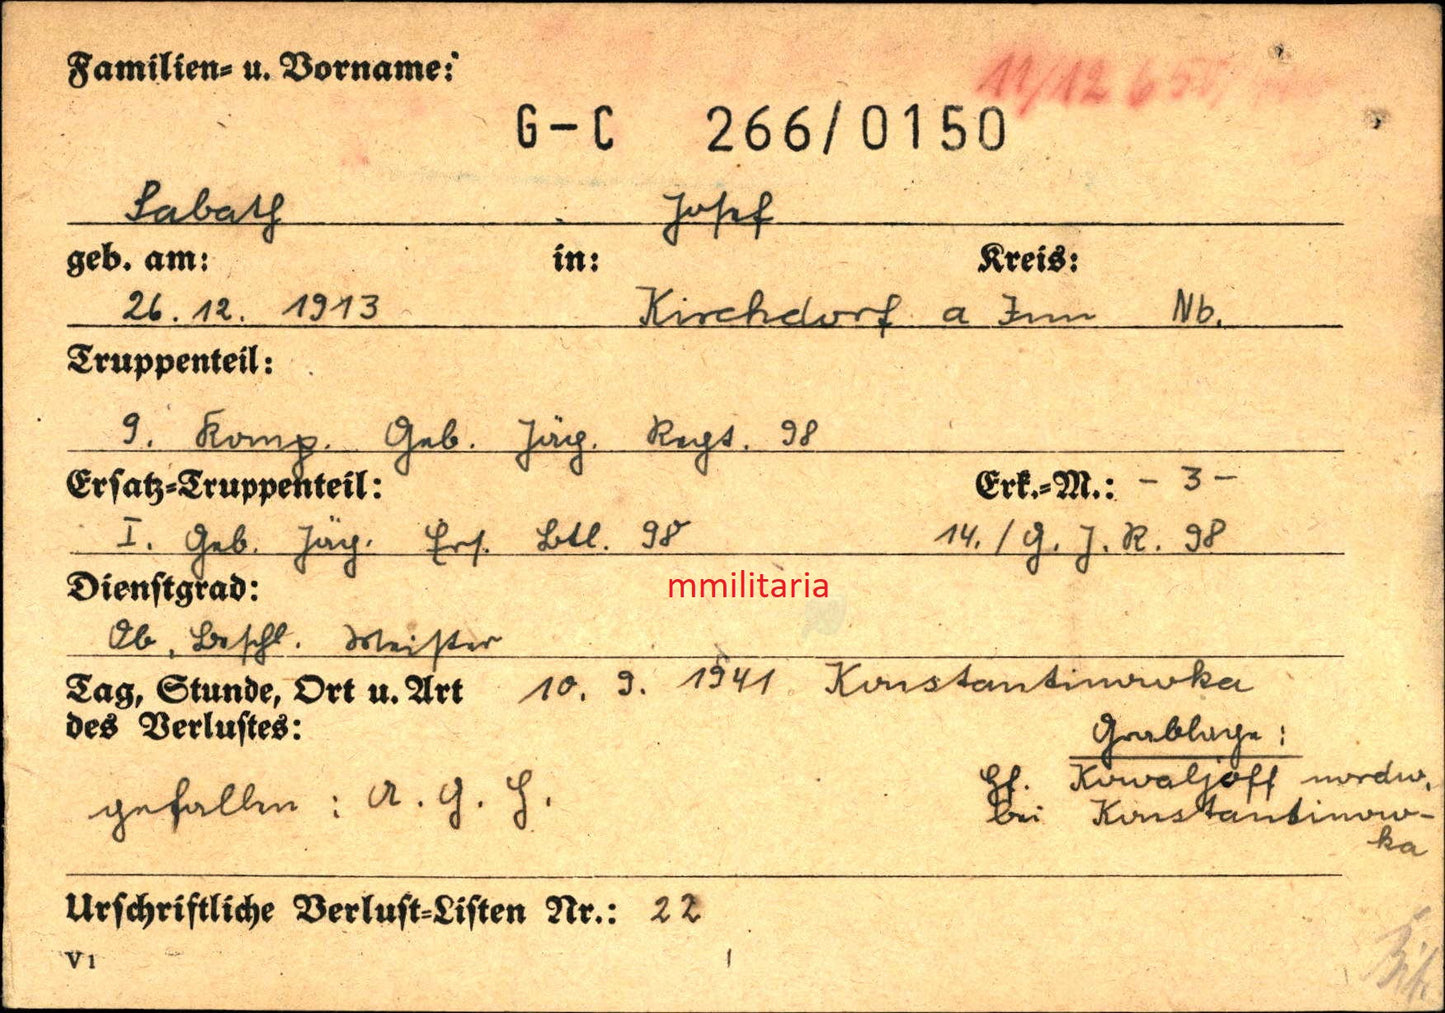 Familien- u. Vorname:
G-C 266/0150
Sabath Josef
geb. am: in: Kreis:
26. 12. 1913 Kirchdorf a Inn Nb.
Truppenteil:
9. Komp. Geb. Jäg. Regt. 98
Ersatz-Truppenteil: Erk.-M.: - 3 -
I. Geb. Jäg. Ers. Btl. 98 14. / G. J. R. 98
mmilitaria
Dienstgrad:
Ob. Beschl. Meister
Tag, Stunde, Ort u. Art 10. 9. 1941 Konstantinowka
des Verlustes:
Grablage:
gefallen : A. G. H. Hf. Kowaljoff nordw.
bei Konstantinow-
ka
Urschriftliche Verlust-Listen Nr.: 22
V 1